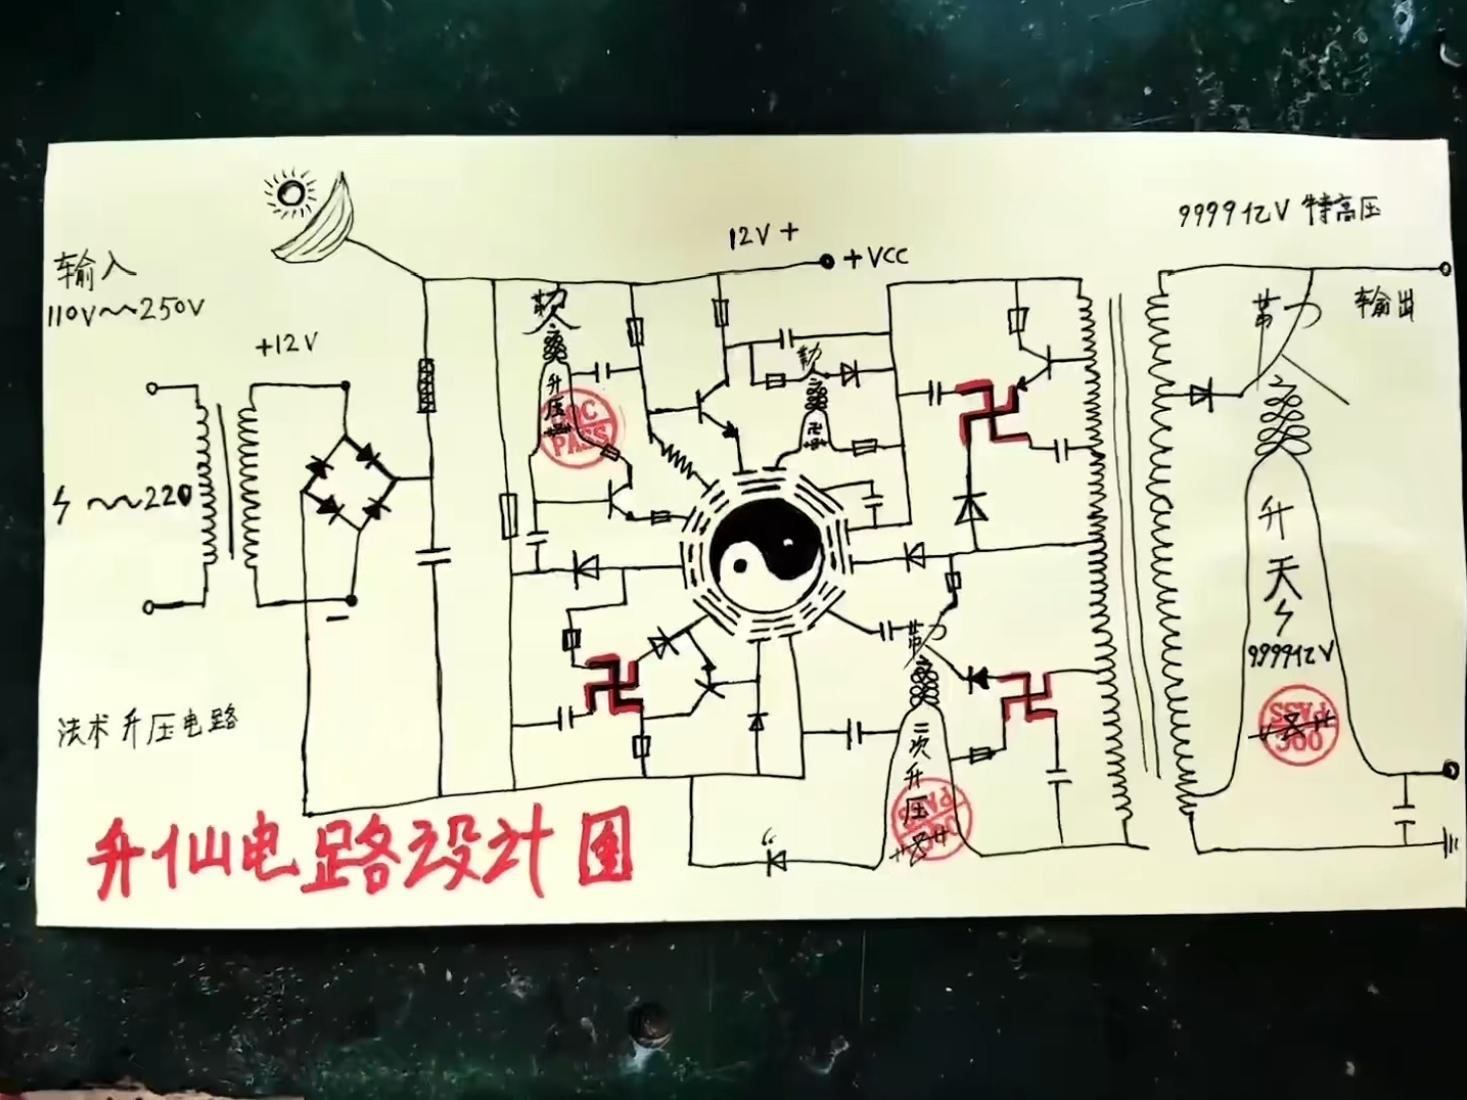 9999亿V 特高压
12V +
+VCC
输入
110V~~250V
输出
+12V
~~220
升压
QC
PASS
卍
升天
9999亿V
PASS
法术升压电路
二次升压
PASS
升仙电路设计图